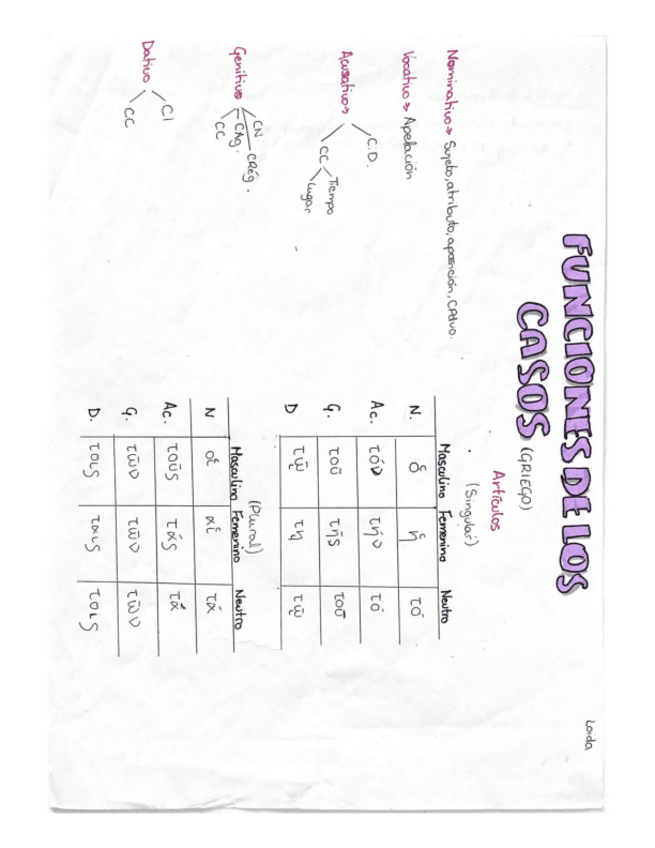 FUNCIONES DE LOS
CASOS (GRIEGO)
Loida
Nominativo → Sujeto, atributo, aposición, CPdvo.
Vocativo → Apelación
Acusativo → C.D.
CC Tiempo
Lugar
Genitivo CN
CRég.
CAg.
CC
Dativo CI
CC
Artículos
(Singular)
Masculino Femenino Neutro
N. ὁ ἡ τό
Ac. τόν τήν τό
G. τοῦ τῆς τοῦ
D τῷ τῃ τῷ
(Plural)
Masculino Femenino Neutro
N οἱ αἱ τά
Ac. τοῦς τάς τά
G. τῶν τῶν τῶν
D. τοις ταις τοις